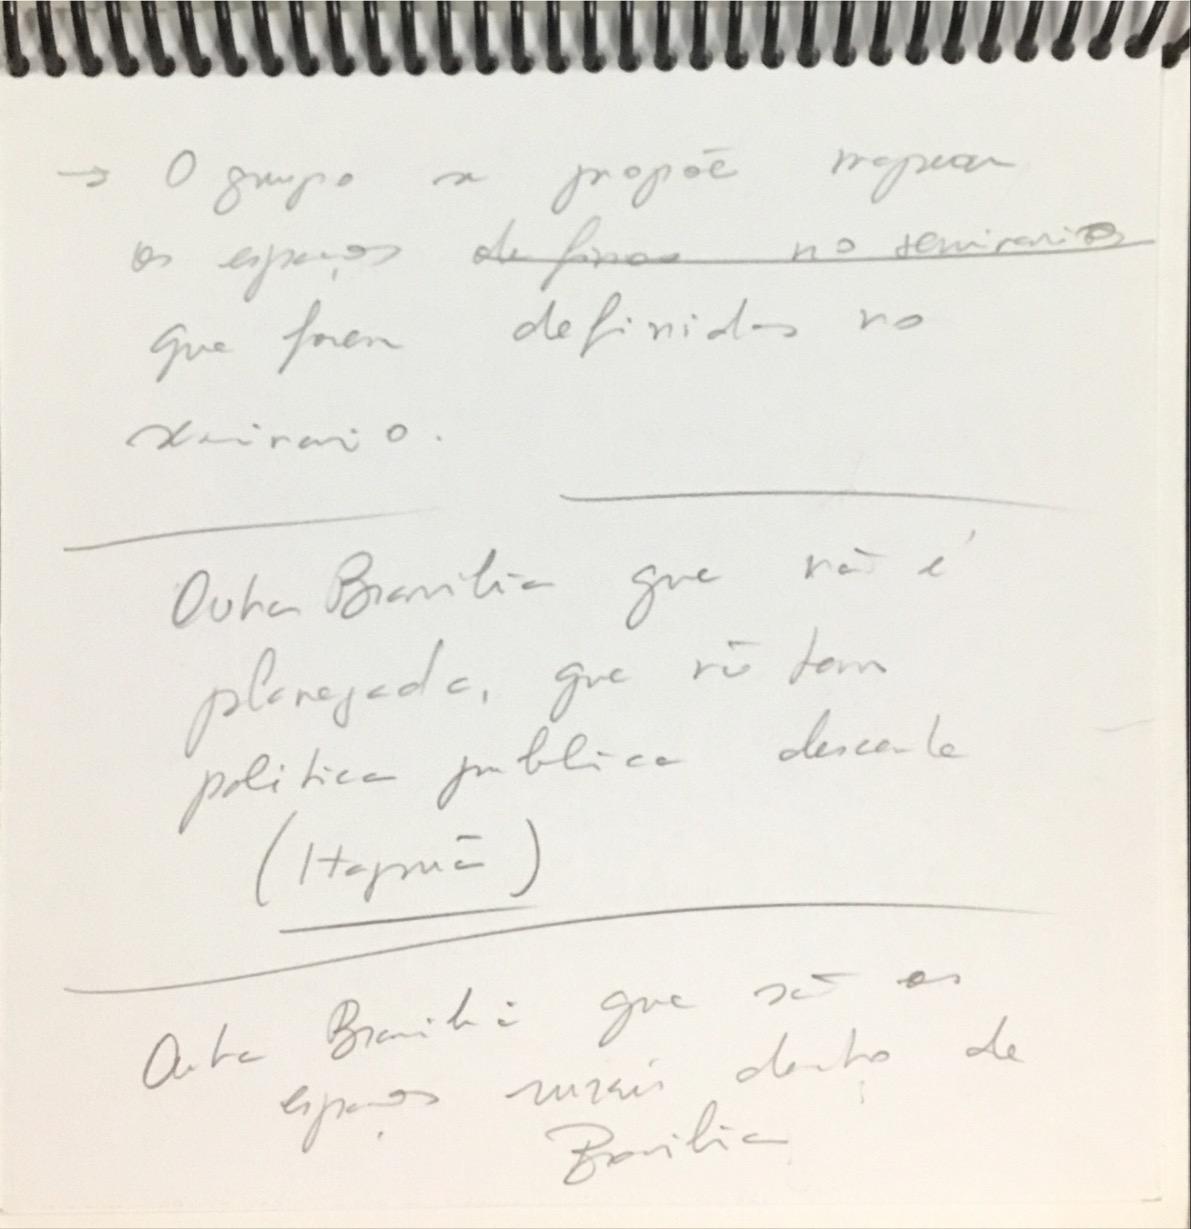 → O grupo se propõe mapear
os espaços definos no seminarios
que forem definidos no
seminario.
Outra Brasilia que não é
planejada, que não tem
politica publica descente
(Itapuã)
Outra Brasilia que são os
espaços rurais dentro de
Brasilia